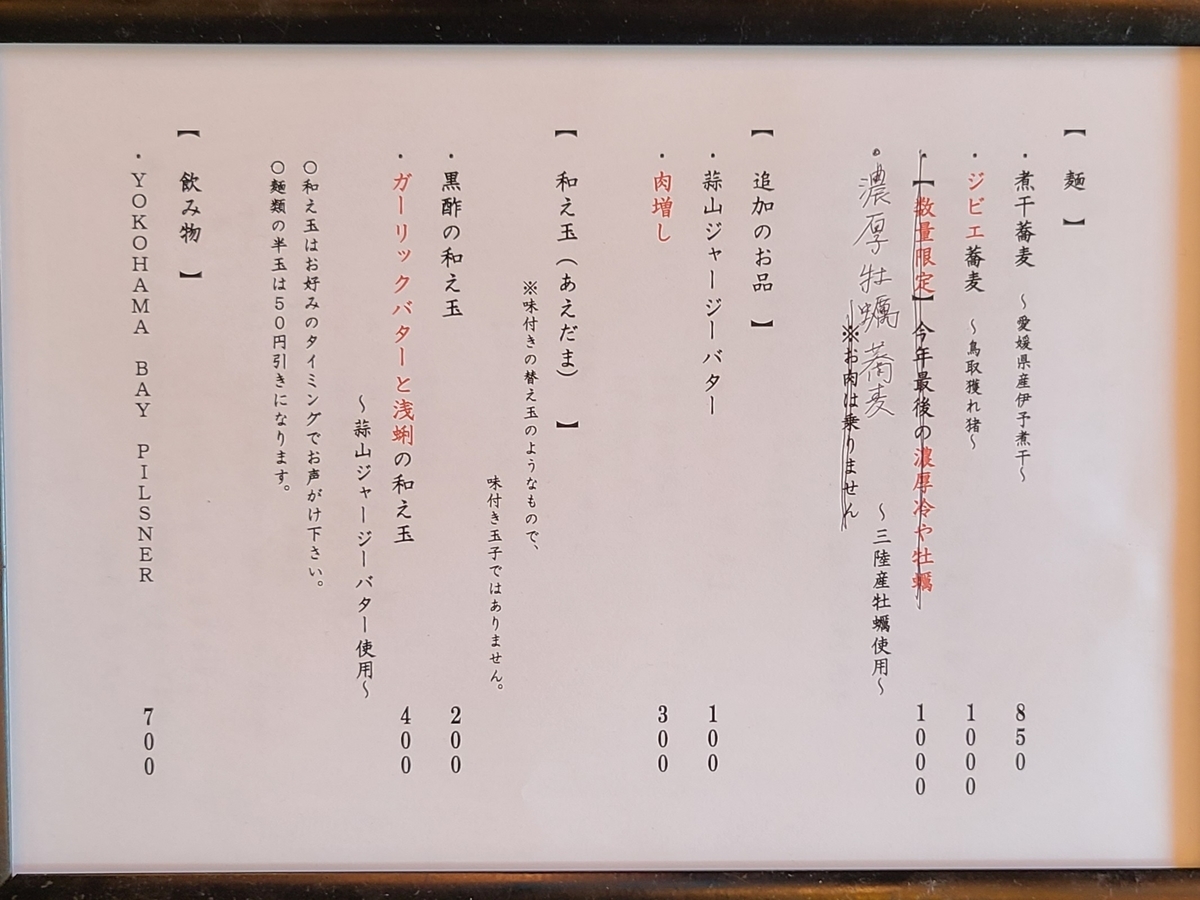 【 麺 】
・煮干蕎麦 ～愛媛県産伊予煮干～ 850
・ジビエ蕎麦 ～鳥取獲れ猪～ 1000
・【数量限定】今年最後の濃厚冷や牡蠣 1000
・濃厚牡蠣蕎麦 ～三陸産牡蠣使用～
※お肉は乗りません
【 追加のお品 】
・蒜山ジャージーバター 100
・肉増し 300
【 和え玉（あえだま） 】
※味付きの替え玉のようなもので、
味付き玉子ではありません。
・黒酢の和え玉 200
・ガーリックバターと浅蜊の和え玉 400
～蒜山ジャージーバター使用～
〇和え玉はお好みのタイミングでお声がけ下さい。
〇麺類の半玉は５０円引きになります。
【 飲み物 】
・ＹＯＫＯＨＡＭＡ ＢＡＹ ＰＩＬＳＮＥＲ 700